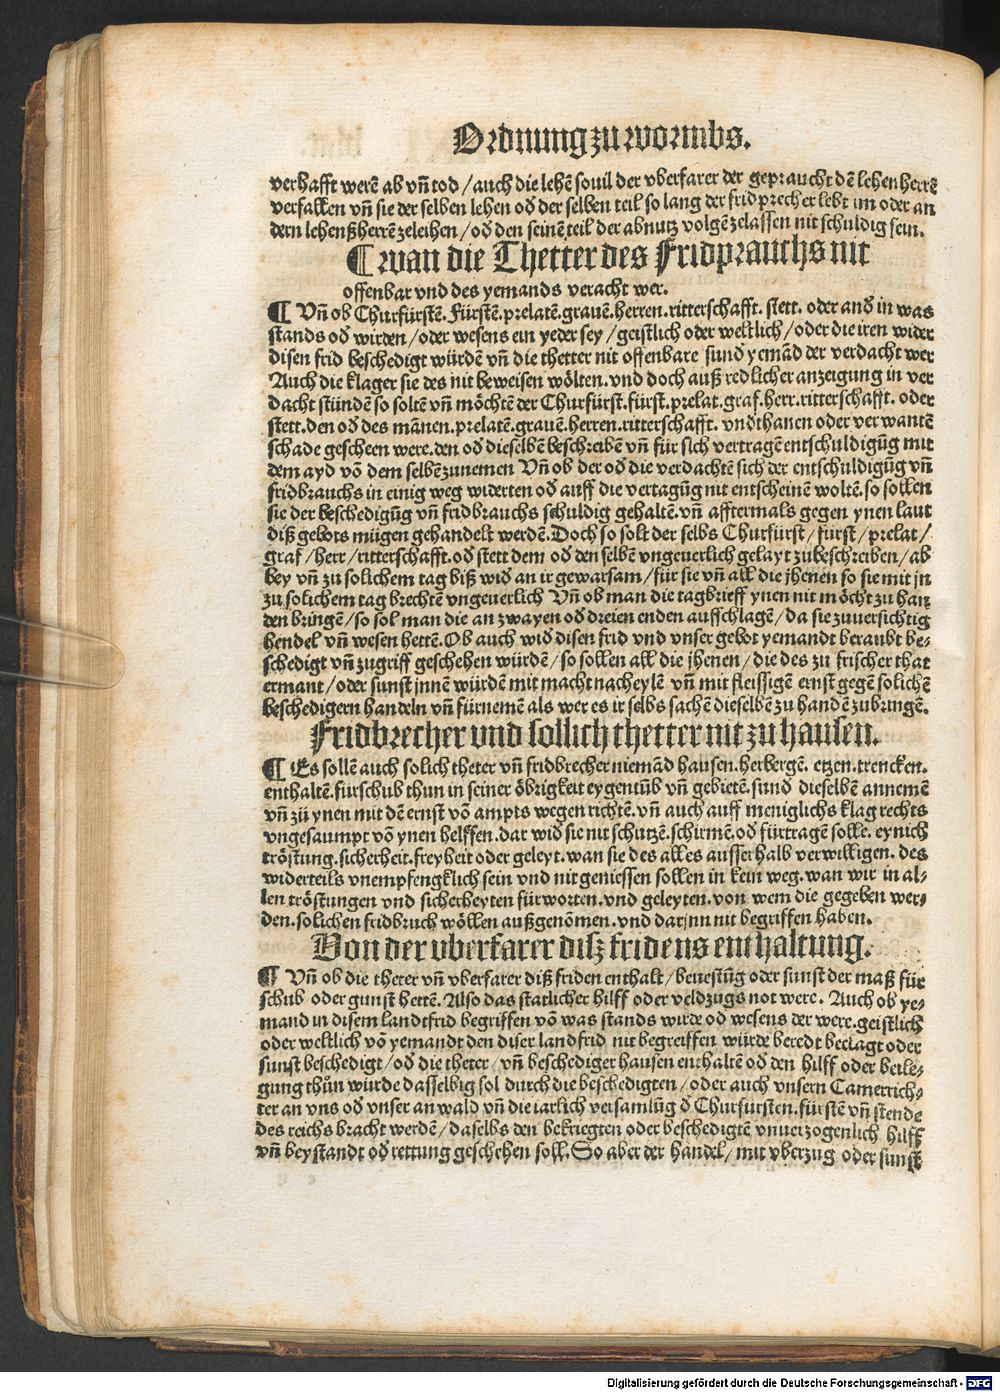 Ordnung zu wormbs.
verhafft werē ab vñ tod / auch die lehē souil der vberfarer der gepraucht dē lehenherrē
verfallen vñ sie der selben lehen oď der selben teil so lang der fridprecher lebt im oder an
dern lehenßherrē zeleihen / oď den seinē teil der abnutz volgē zelassen nit schuldig sein.
¶ wan die Thetter des Fridprauchs nit
offenbar vnd des yemands veracht wer.
¶ Vñ ob Churfürstē. Fürstē. prelatē. grauē. herren. ritterschafft. stett. oder anď in was
stands oď wirden / oder wesens ein yeder sey / geistlich oder weltlich / oder die iren wider
disen frid beschedigt würdē vñ die thetter nit offenbare sunď yemād der verdacht wer
Auch die klager sie des nit beweisen wölten. vnd doch auß redlicher anzeigung in ver
dacht stündē so soltē vñ möchtē der Churfürst. fürst. prelat. graf. herr. ritterschafft. oder
stett. den oď des mānen. prelatē. grauē. herren. ritterschafft. vnďthanen oder verwantē
schade gescheen were. den oď dieselbē beschreibē vñ für sich vertragē entschuldigūg mit
dem ayd vō dem selbē zunemen Vñ ob der oď die verdachtē sich der entschuldigūg vñ
fridbrauchs in einig weg widerten oď auff die vertagūg nit entscheinē woltē. so sollen
sie der beschedigūg vñ fridbrauchs schuldig gehaltē. vñ afftermals gegen ynen laut
diß gebots mügen gehandelt werdē. Doch so solt der selbs Churfürst / fürst / prelat /
graf / herr / ritterschafft. oď stett dem oď den selbē vngeuerlich gelayt zubeschreiben / ab
bey vñ zu solichem tag biß wiď an ir gewarsam / für sie vñ all die jhenen so sie mit jn
zu solichem tag brechtē vngeuerlich Vñ ob man die tagbrieff ynen nit möcht zu han
den bringē / so sol man die an zwayen oď dreien enden auffschlagē / da sie zuuersichtig
hendel vñ wesen hettē. Ob auch wiď disen frid vnd vnser gebot yemandt beraubt be-
schedigt vñ zugriff geschehen würdē / so sollen all die jhenen / die des zu frischer that
ermant / oder sunst jnnen würdē mit macht nacheylē vñ mit fleissigē ernst gegē solichē
beschedigern handeln vñ fürnemē als wer es ir selbs sachē dieselbē zu handē zubringē.
Fridbrecher vnd sollich thetter nit zu hausen.
¶ Es sollē auch solich theter vñ fridbrecher niemād hausen. herbergē. etzen. trencken.
enthaltē. furschub thun in seiner öbrigkeit eygentūb vñ gebietē. sunď dieselbē annemē
vñ zü ynen mit dē ernst vō ampts wegen richtē. vñ auch auff meniglichs klag rechts
vngesaumpt vō ynen helffen. dar wiď sie nit schutzē. schirmē. oď fürtragē solle. eynich
tröstung. sicherheit. freyheit oder geleyt. wan sie des alles ausserhalb verwilligen. des
widerteils vnempfengklich sein vnd nit geniessen sollen in kein weg. wan wir in al-
len tröstungen vnd sicherheyten fürworten. vnd geleyten. von wem die gegeben wer-
den. solichen fridbruch wöllen außgenōmen. vnd darjnn nit begriffen haben.
Von der vberfarer disz fridens enthaltung.
¶ Vñ ob die theter vñ vberfarer diß friden enthalt / beuestūg oder sunst der maß für
schub oder gunst hettē. Also das statlicher hilff oder veldzugs not were. Auch ob ye-
mand in disem landtfrid begriffen vō was stands wirde oď wesens der were. geistlich
oder weltlich vō yemandt den diser landfrid nit begreiffen würde beredt beclagt oder
sunst beschedigt / oď die theter / vñ beschediger hausen enthaltē oď den hilff oder beile-
gung thün würde dasselbig sol durch die beschedigten / oder auch vnsern Camerrich-
ter an vns oď vnser anwald vñ die iarlich versamlūg ď Churfürsten. fürstē vñ stende
des reichs bracht werdē / daselbs den bekriegten oder beschedigtē vnuerzogenlich hilff
vñ beystandt oď rettung geschehen soll. So aber der handel / mit vberzug oder sunst
Digitalisierung gefördert durch die Deutsche Forschungsgemeinschaft - DFG